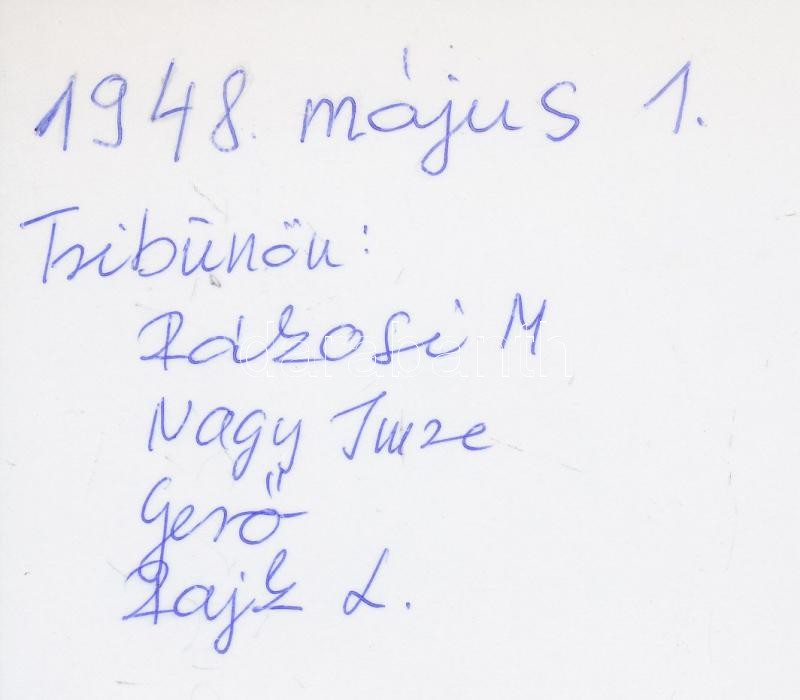 1948. május 1.
Tribünön:
Rákosi M
Nagy Imre
Gerő
Rajk L.
darabanth